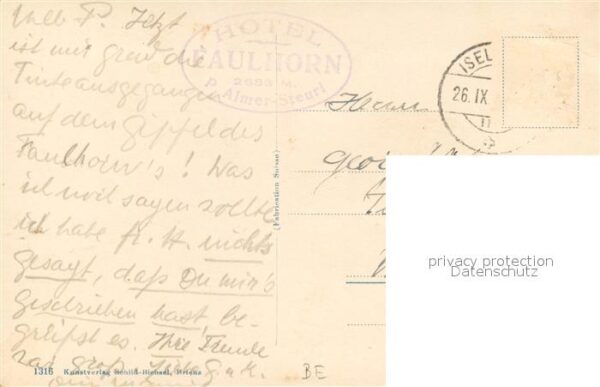 Jetzt
ist mir grad die
Tinte ausgegangen
auf dem Gipfel des
Faulhorn's! Was
ich noch sagen wollte
ich habe nichts
gesagt, daß Du mir's
geschrieben hast, be-
greifst es. Ihre Freude
war groß.
HOTEL
FAULHORN
2683 M.
Almer-Steuri
ISEL
26. IX
Herrn
(Fabrication Suisse)
privacy protection
Datenschutz
1316 Kunstverlag Schild-Bichsel, Brienz
BE